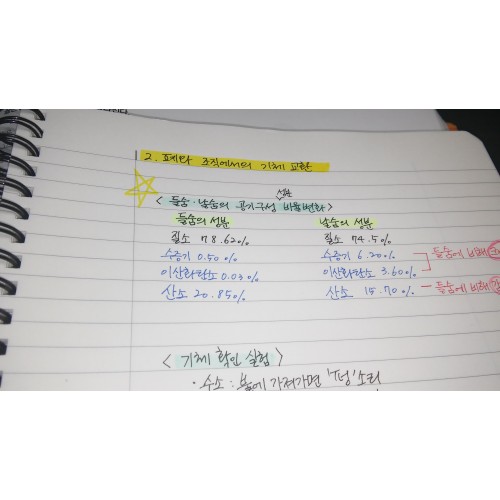 2. 폐와 조직에서의 기체 교환
< 들숨·날숨의 공기구성 비율변화 >
들숨의 성분 날숨의 성분
질소 78.62% 질소 74.5%
수증기 0.50% 수증기 6.20%
들숨에 비해
이산화탄소 0.03% 이산화탄소 3.60%
산소 20.85% 산소 15.70% 들숨에 비해
< 기체 확인 실험 >
· 수소 : 불에 가져가면 '펑' 소리